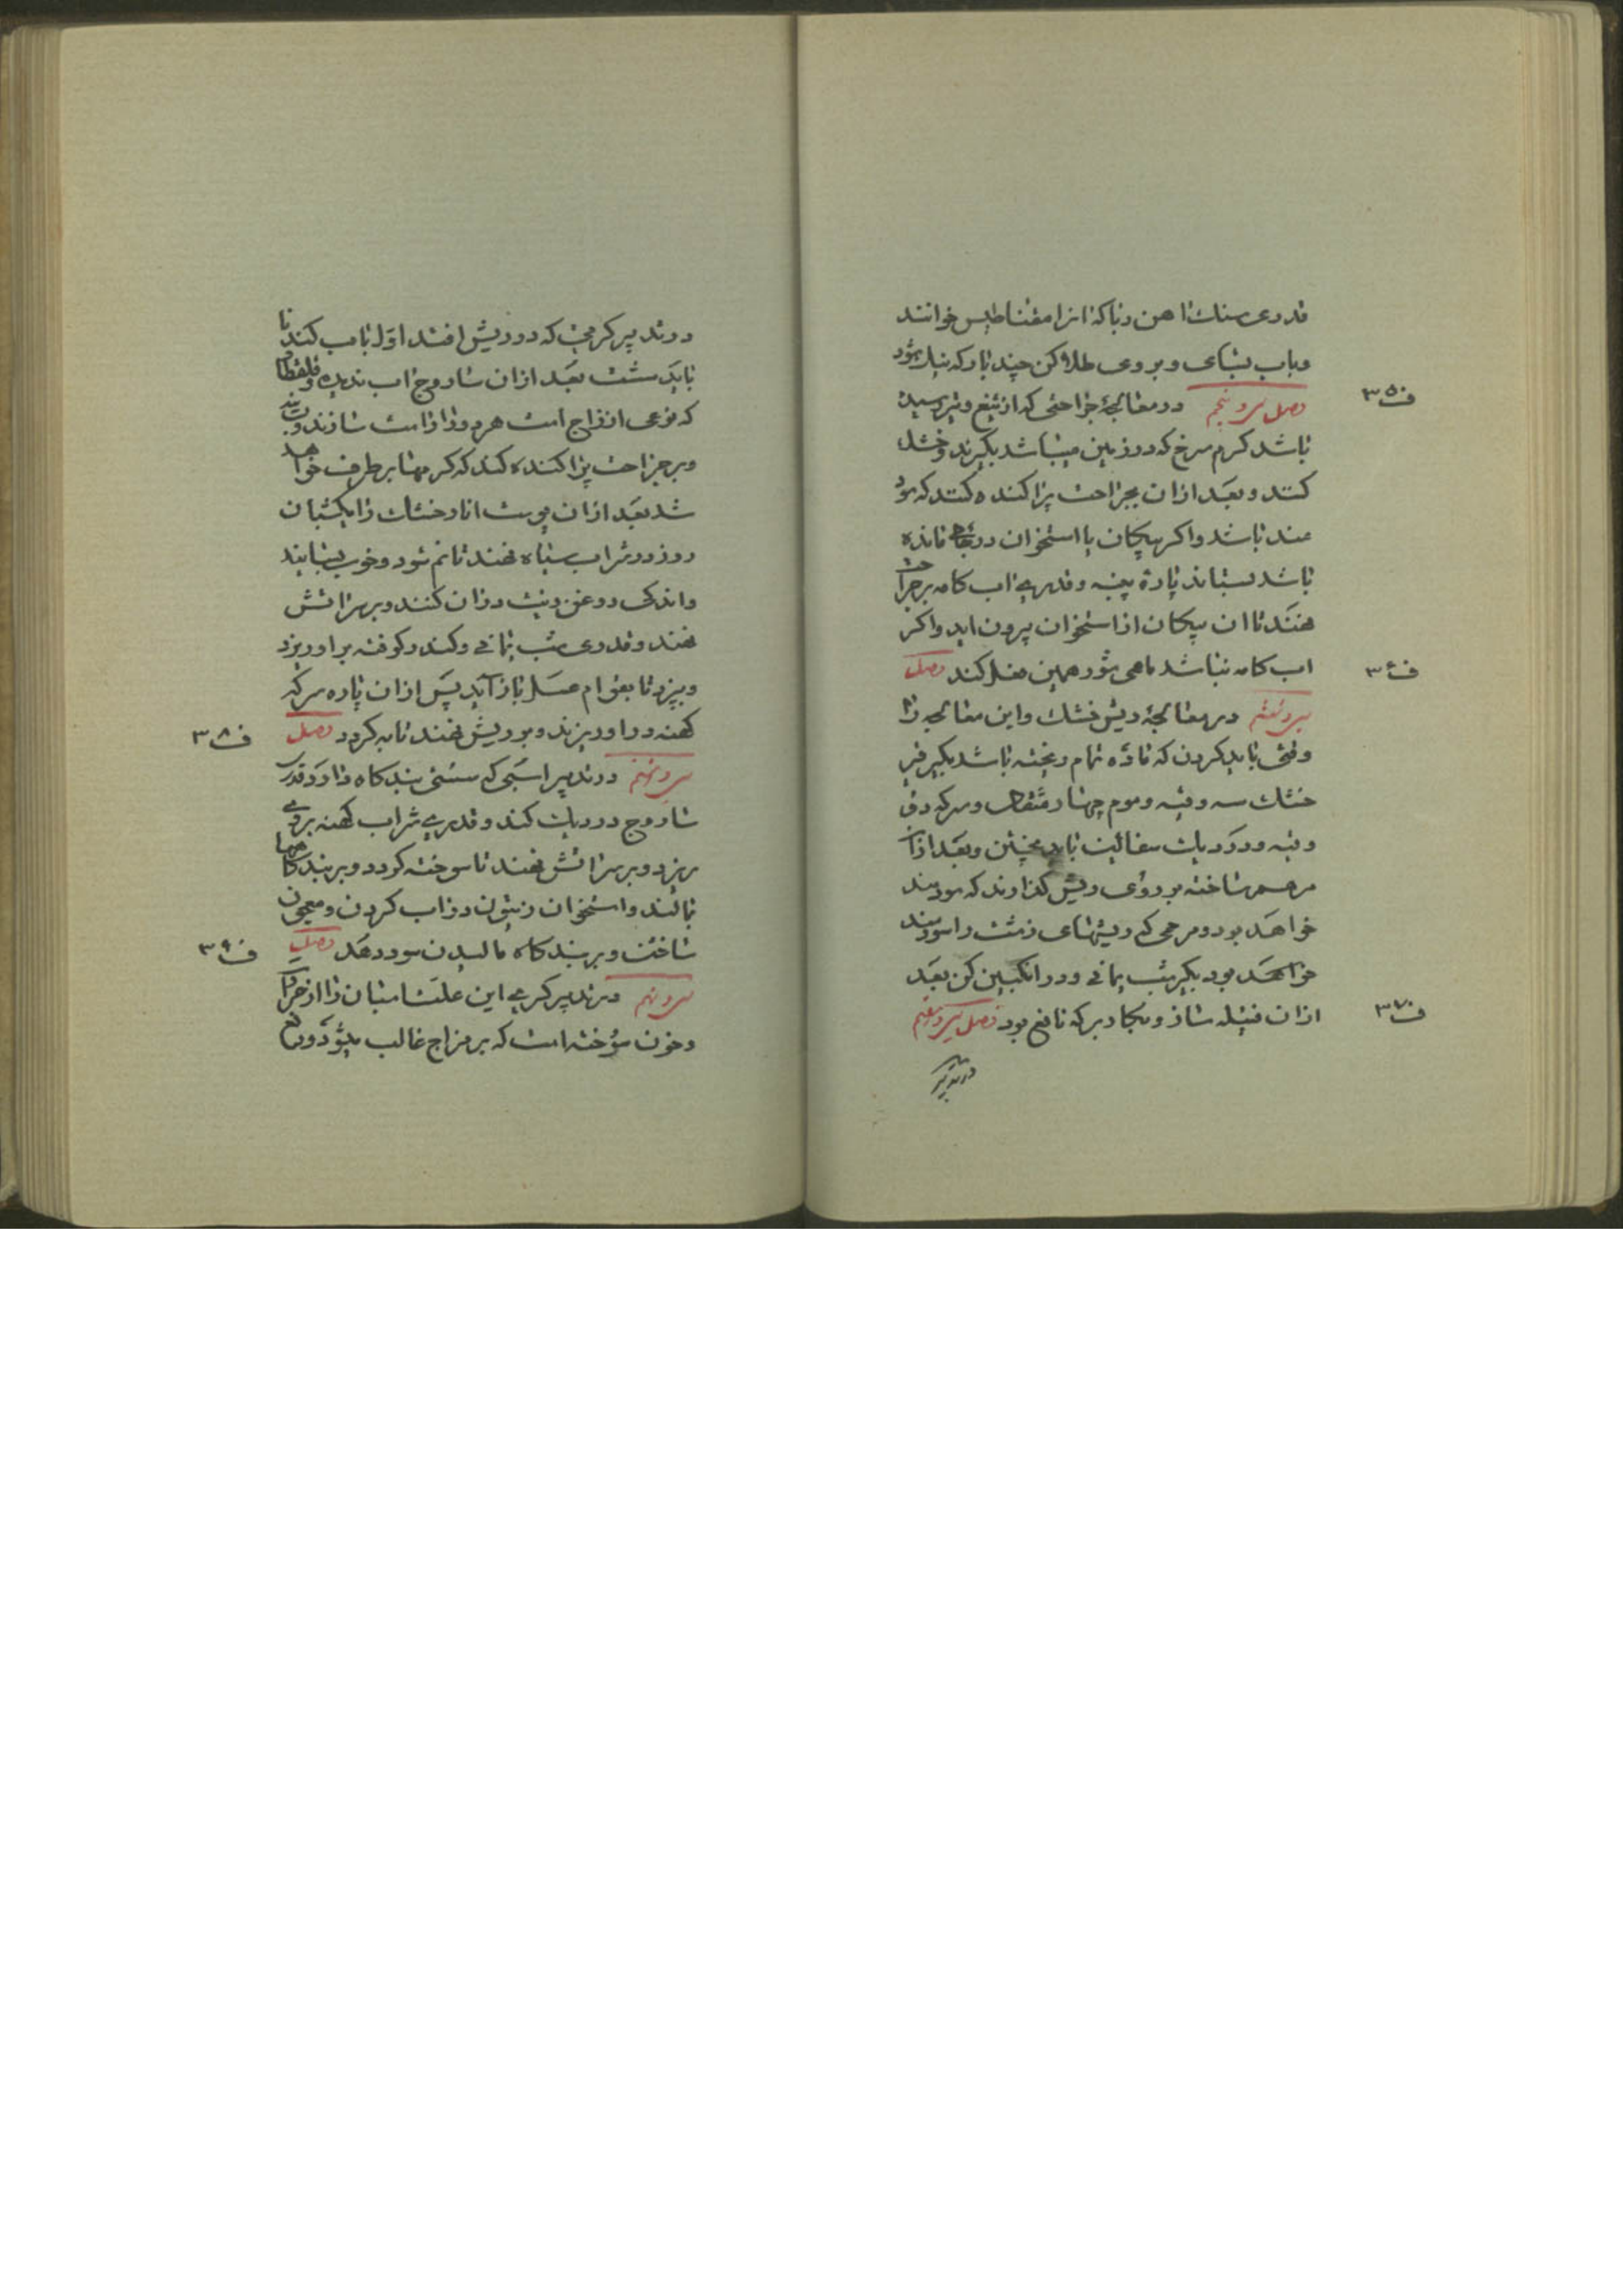 قدری سنك اهن ربا كه انرا مقناطیس خوانند
وباب بسای و بروی طلا كن چند بار كه نیك شود
ف ۳۵ فصل سی و پنجم در معالجهٔ جراحتی كه از تیغ و تیر رسیده
باشد كرم سرخ كه در زمین میباشد بكیرند و خشك
كنند و بعد ازان بجراحت پراكنده كنند كه سود
مند باشد واكر پیكان با استخوان در جای مانده
باشد بستاند پارهٔ پنبه و قدری اب كامه برجراحت
نهند تا ان پیكان از استخوان بیرون اید واكر
ف ۳۶ اب كامه نباشد ماهی شور همین فعل كند فصل
سی و ششم در معالجهٔ ریش خشك واین معالجه را
وقتی باید كردن كه ماده تمام ریخته باشد بكیر قیر
خشك سه وقیه و موم چهار مثقال و سركه دو
وقیه و در دیك سفالین باید پختن و بعد ازان
مرهم ساخته بر روی ریش كذارند كه سودمند
خواهد بود و مرهمی كه ریشهای زشت را سودمند
خواهد بود بكیر شب یمانی و در انكبین كن بعد
ف ۳۷ ازان فتیله ساز و بكار بر كه نافع بود فصل سی و هفتم
در تدبیر
در تدبیر كرمی كه در ریش افتد اول باب كندنا
باید شست بعد ازان ساروج اب ندیده و قلقطار
كه نوعی از زاج است هر دو را راست سازند و
و بر جراحت پراكنده كند كه كرمها بر طرف خواهد
شد بعد ازان پوست انار خشك را یكشبان
روز در شراب سیاه نهند تا نم شود و خوب بسایند
واندكی روغن زیت دران كنند و بر سر اتش
نهند و قدری شب یمانی و كندر كوفته بر او ریزد
و بپزد تا بقوام عسل باز آید پس ازان پاره سركه
ف ۳۸ كهنه در او ریزند و بر ریش نهند تا به كردد فصل
سی و هشتم در تدبیر اسبی كه سستی بند كاه دارد قدری
ساروج در دیك كند و قدری شراب كهنه بروی
ریزد و بر سر اتش نهند تا سوخته كردد و بر بند كاهها
مالند و استخوان زیتون در اب كردن و معجون
ف ۳۹ ساختن و بر بند كاه مالیدن سود دهد فصل
سی و نهم در تدبیر كری این علت اسبان را از حرارت
و خون سوخته است كه بر مزاج غالب میشود و